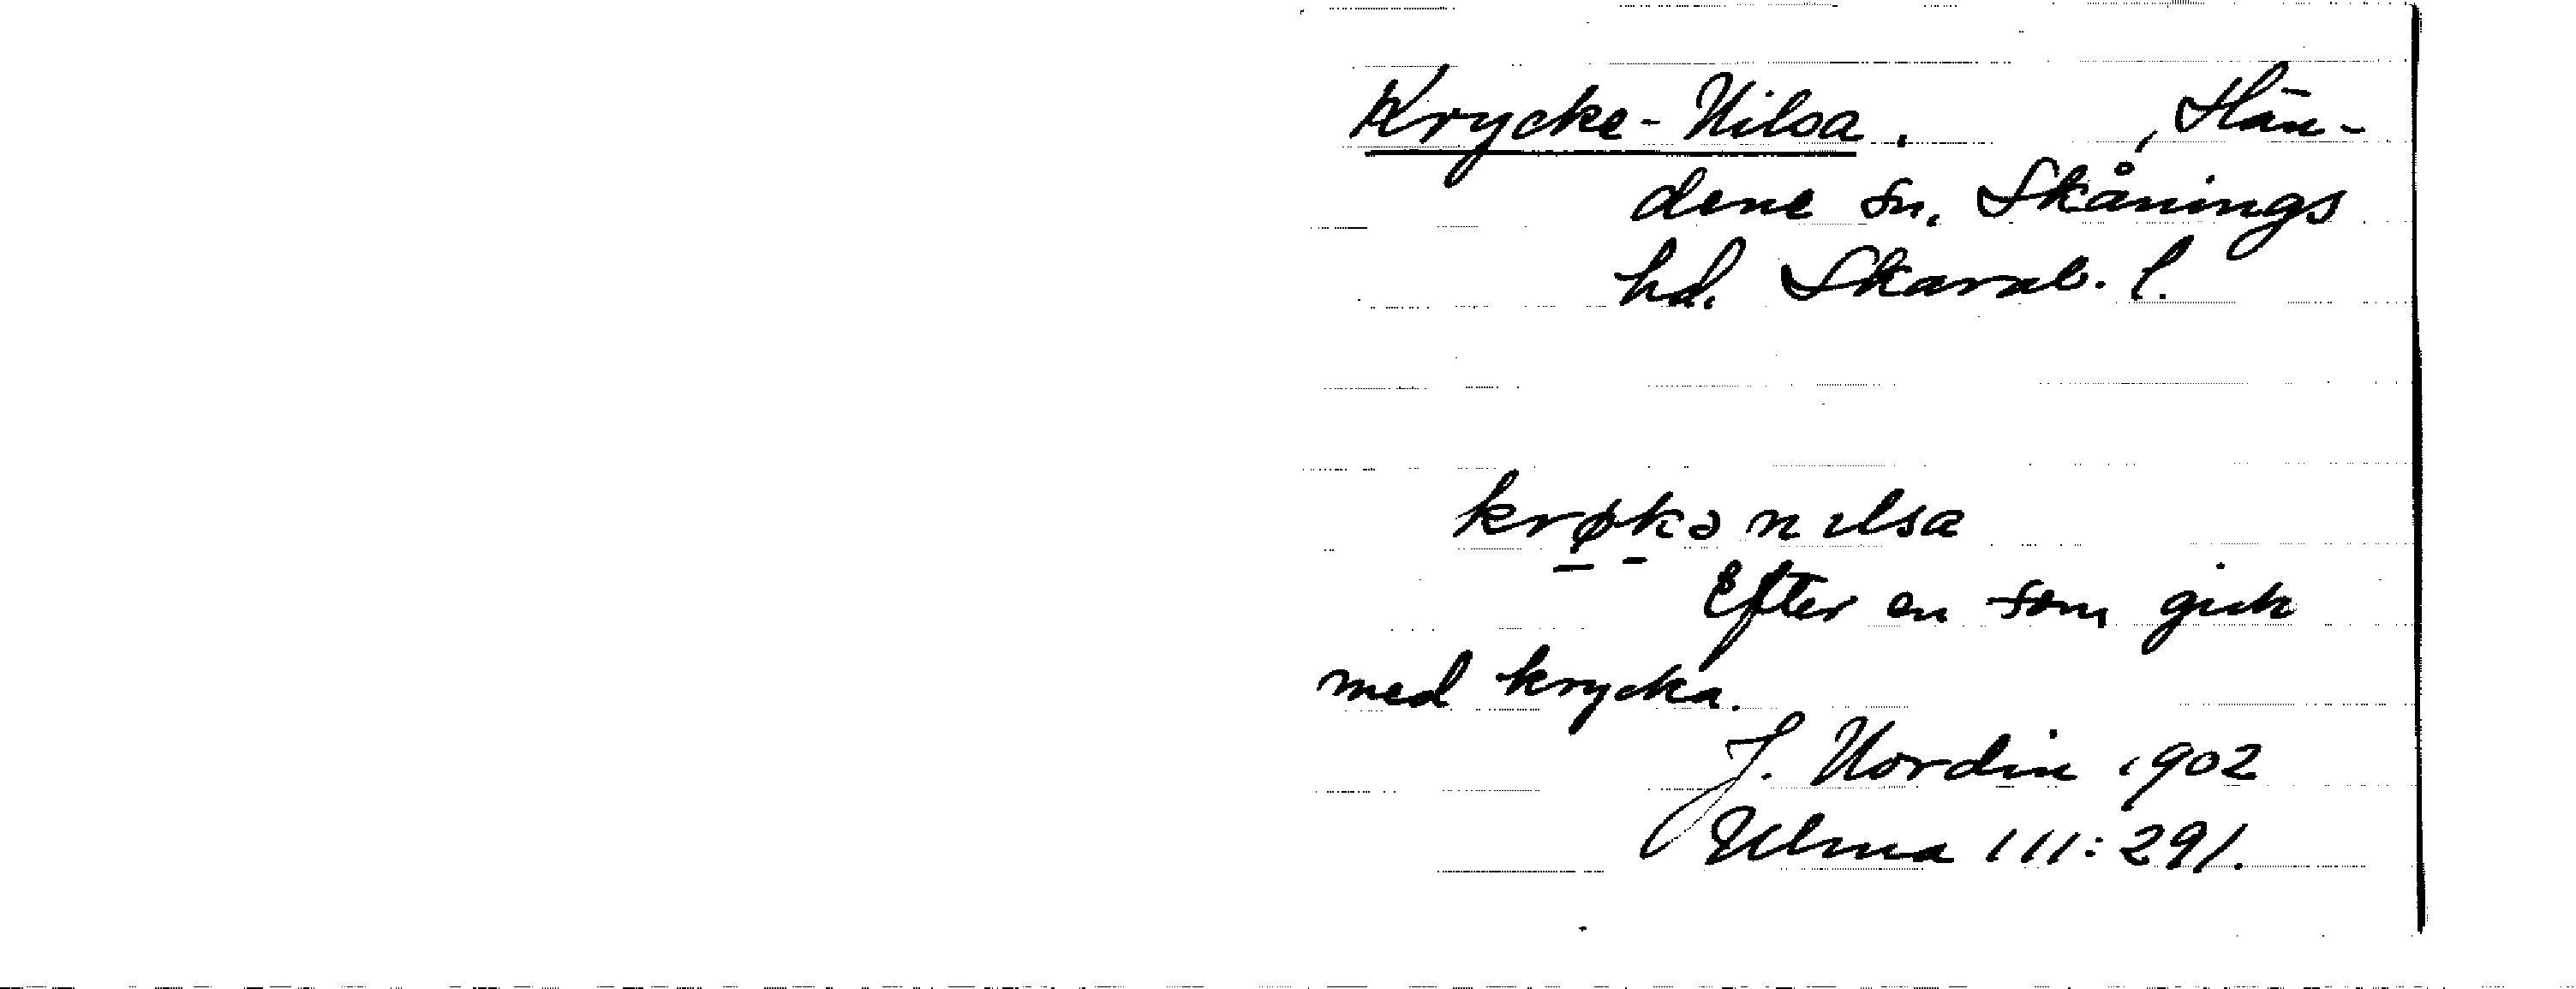 Krycke-Nilsa. , Hän-
dene sn. Skånings
hd. Skarab. l.
krøkə nılsa
Efter en som gick
med krycka.
J. Nordin 1902
Ulma 111:291.